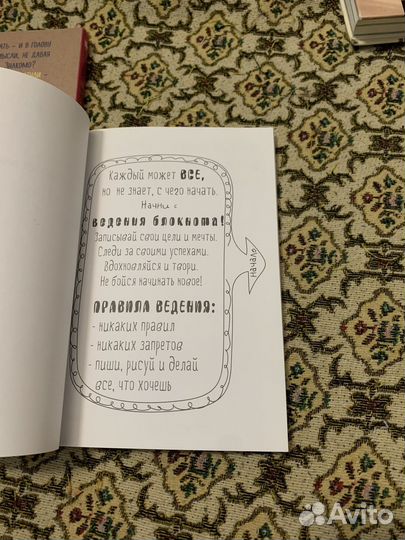 АТЬ – И В ГОЛОВУ
МЫСЛИ, НЕ ДАВАЯ
ЗНАКОМО?
Каждый может ВСЕ,
но не знает, с чего начать.
Начни с
ВЕДЕНИЯ БЛОКНОТА!
Записывай свои цели и мечты.
Следи за своими успехами.
Вдохновляйся и твори.
Не бойся начинать новое!
НАЧАЛО
ПРАВИЛА ВЕДЕНИЯ:
- никаких правил
- никаких запретов
- пиши, рисуй и делай
все, что хочешь
Avito